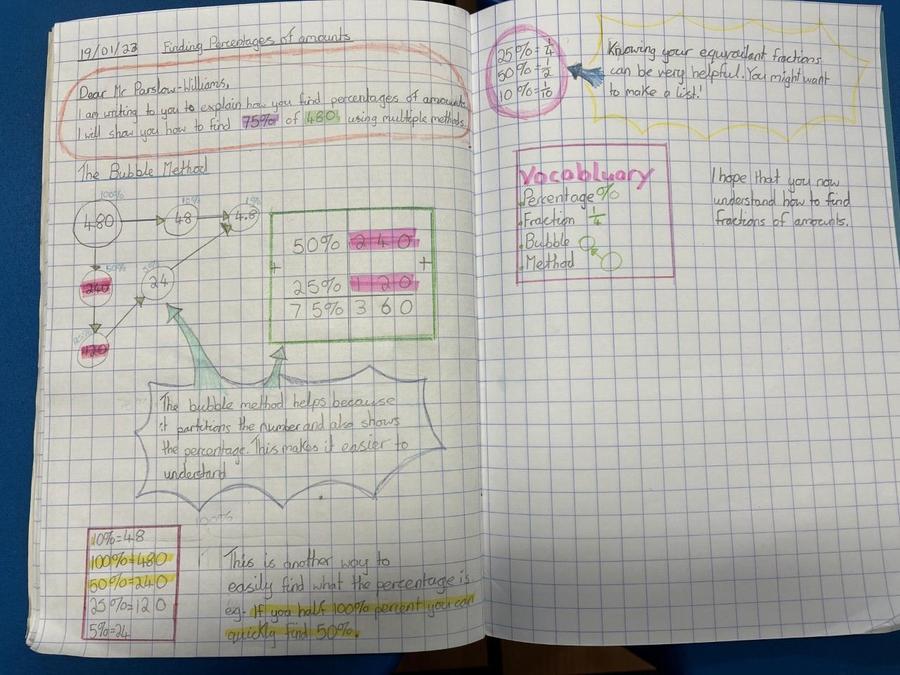 19/01/23 Finding Percentages of amounts
Dear Mr Parslow-Williams,
I am writing to you to explain how you find percentages of amounts.
I will show you how to find 75% of 480 using multiple methods.
The Bubble Method
100%
480
10%
48
1%
4.8
50%
240
5%
24
25%
120
50% 240
+ +
25% 120
75% 360
The bubble method helps because
it partitions the number and also shows
the percentage. This makes it easier to
understand
100%
10%=48
100%=480
50%=240
25%=120
5%=24
This is another way to
easily find what the percentage is
eg. If you half 100% percent you can
quickly find 50%.
25%=1/4
50%=1/2
10%=1/10
Knowing your equivalent fractions
can be very helpful. You might want
to make a list!
Vocabluary
.Percentage %
.Fraction 1/4
.Bubble
.Method
I hope that you now
understand how to find
fractions of amounts.